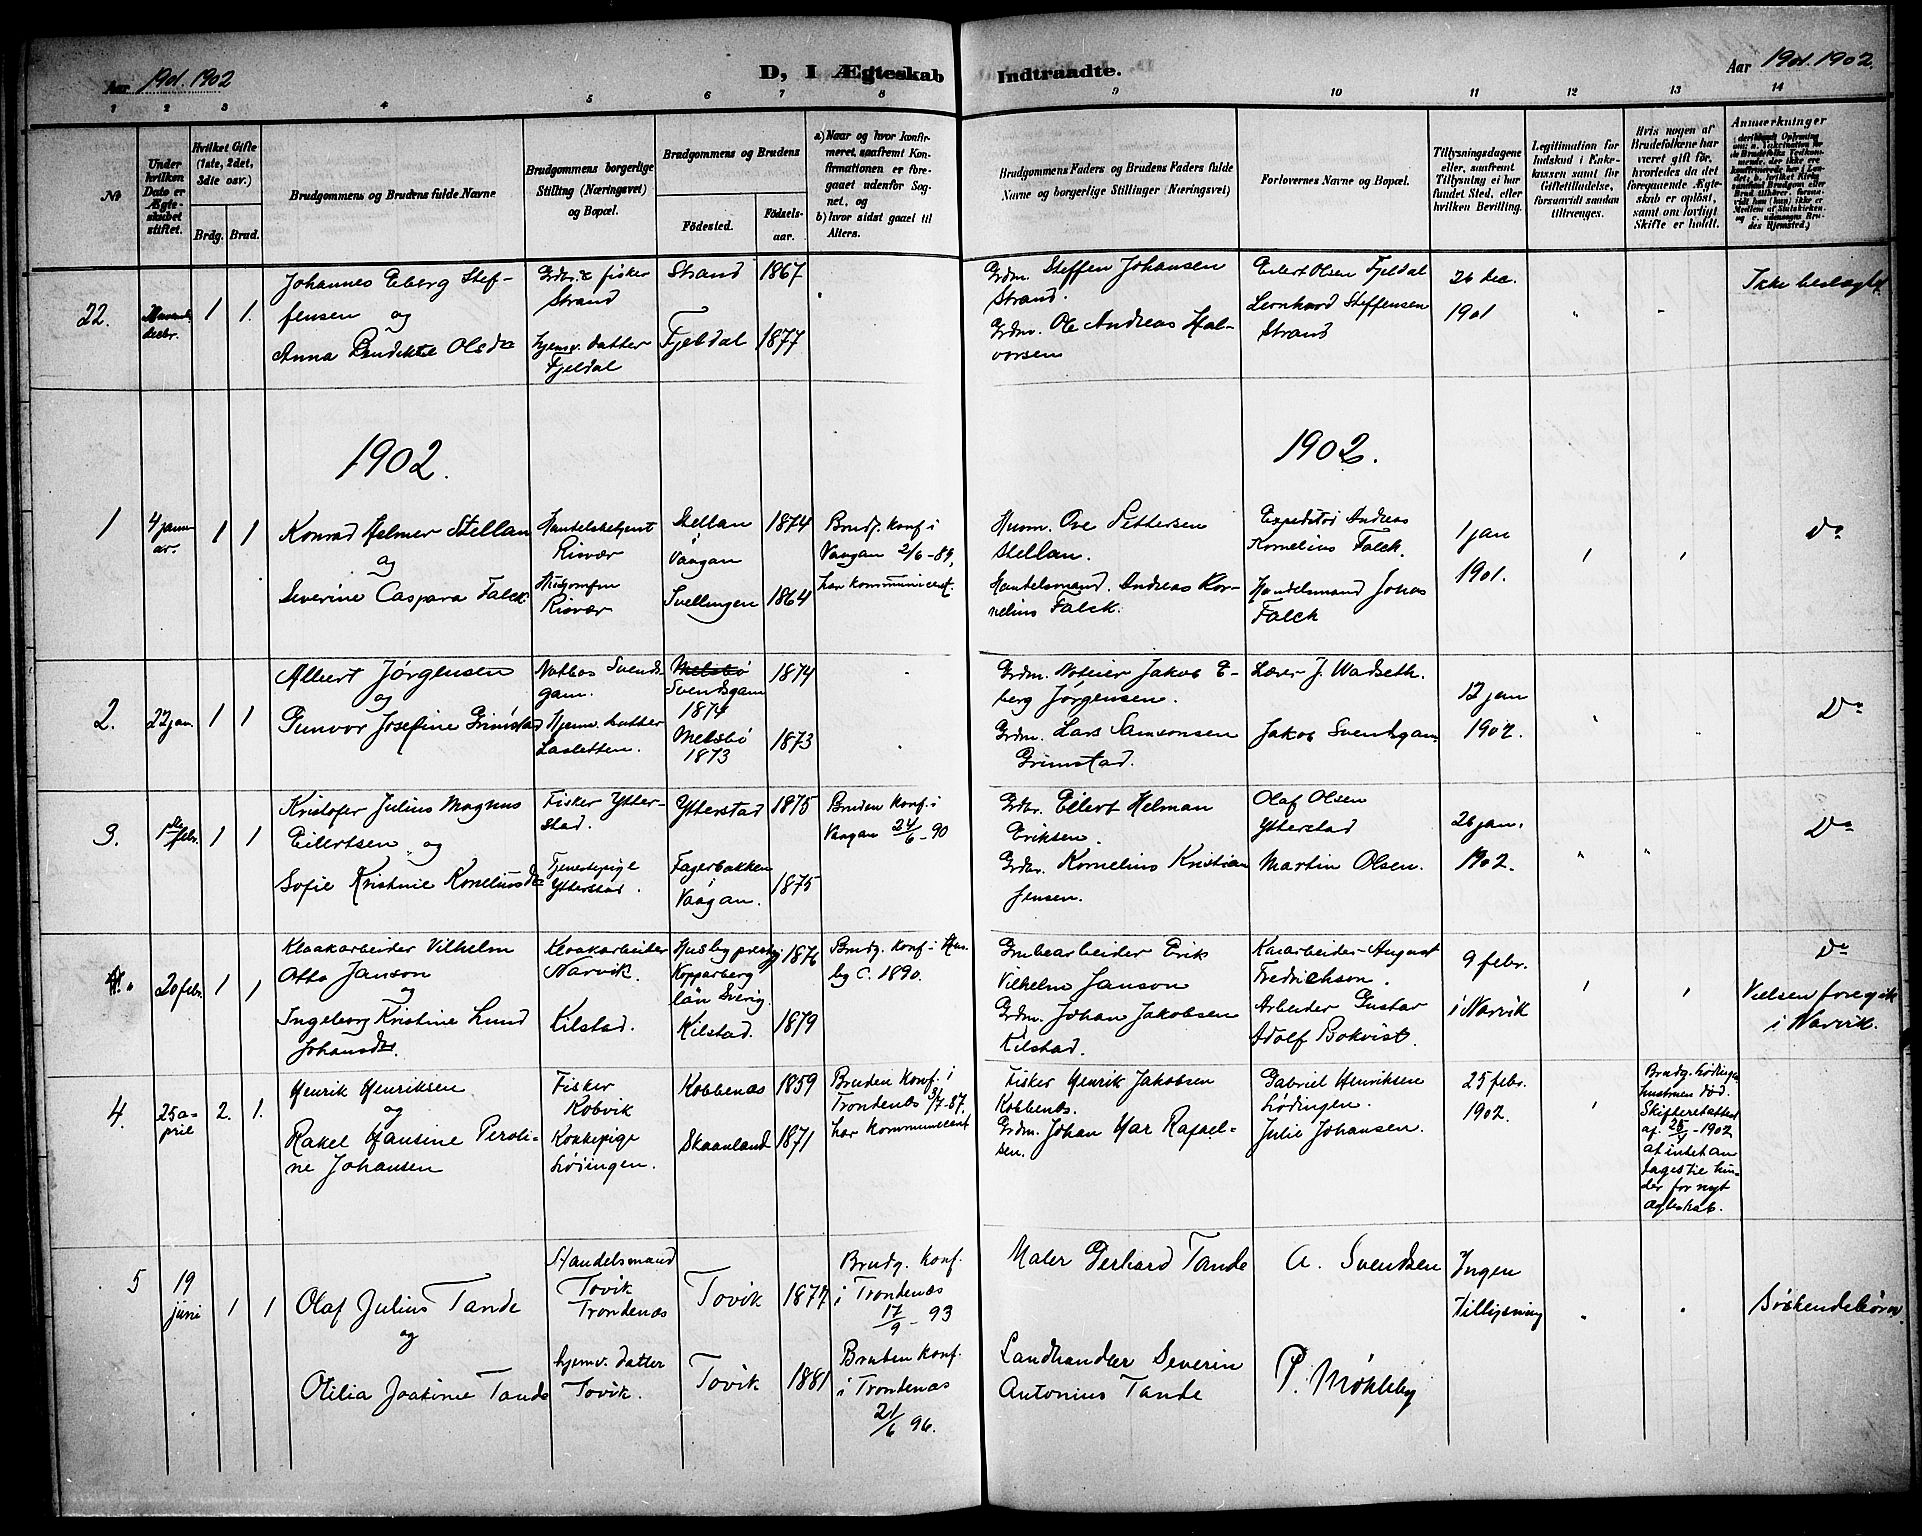 Aar 1901. 1902
D, I Ægteskab Indtraadte.
Aar 1901. 1902.
1 2 3 4 5 6 7 8 9 10 11 12 13 14
No
Under hvilken Dato er Ægteskabet stiftet.
Hvilket Gifte (1ste, 2det, 3die osv.)
Brdg. Brud.
Brudgommens og Brudens fulde Navne
Brudgommens borgerlige Stilling (Næringsvei) og Bopæl.
Brudgommens og Brudens
Födested.
Födselsaar.
a) Naar og hvor konfirmeret, saafremt Konfirmationen er foregaaet udenfor Sognet, og
b) hvor sidst gaaet til Alters.
Brudgommens Faders og Brudens Faders fulde Navne og borgerlige Stillinger (Næringsvei)
Forlovernes Navne og Bopæl.
Tillysningsdagene eller, saafremt Tillysning ei har fundet Sted, efter hvilken Bevilling.
Legitimation for Indskud i Enkekassen samt for Giftetilladelse, forsaavidt saadan tiltrænges.
Hvis nogen af Brudefolkene har været gift før, hvorledes da det foregaaende Ægteskab er opløst, samt om lovligt Skifte er holdt.
Anmærkninger
22.
desbr.
1 1.
Johannes Eberg Steffensen og
Anna Benedikte Olsda
Grdbr. & fisker
Strand
hjemv. datter
Fjeldal
Strand 1867
Fjeldal 1877
Grdm. Steffen Johansen
Strand.
Grdm. Ole Andreas Halvorsen
Eilert Olsen Fjeldal
Leonhard Steffensen
Strand
26 dec.
1901
Ikke beslægtet.
1902. 1902.
1
4 januar.
1 1
Konrad Helmer Stellan
og
Severine Caspara Falck
Handelsbetjent
Risvær
Risvær
Stellan
i
Vaagan 1874
Svellingen 1864
Brudg. konf i
Vaagan 2/6-89,
har kommuniceret.
Husm. Ove Pettersen
Stellan.
Handelsmand. Andreas Kornelius Falck.
Expeditør Andreas
Kornelius Falck.
Handelsmand Jonas
Falck
1 jan
1901.
Do
2.
22 jan.
1 1
Albert Jørgensen
og
Gunvor Josefine Grimstad
Notbas Svendsgam.
Hjemv. datter
Lasletten.
Melsbø
Svendsgam
1874
1874
Melsbø
1873
1873
Grdm. Noteier Jakob Eberg Jørgensen.
Grdm. Lars Samsonsen
Grimstad.
Lærer J. Wadseth.
Jakob Svendsgam
12 jan
1902.
Do
3.
1ste febr.
1 1
Kristofer Julius Magnus
Eilertsen og
Sofie Kristine Korneliusda
Fisker Ytterstad.
Tjenestepige
Ytterstad.
Ytterstad 1875
Fagerbakken
Vaagan. 1875
Bruden konf. i
Vaagan 24/6-90
Grdbr. Eilert Helman
Eriksen.
Grdbr. Kornelius Kristian
Jensen.
Olaf Olsen
Ytterstad
Martin Olsen.
26 jan.
1902.
Do
20 febr.
1 1
Kloakarbeider Vilhelm
Otto Janson
og
Ingeborg Kristine Lund
Johansda.
Kloakarbeider
Narvik.
Kilstad.
Husby prestgj
Kopparberg
län Sverig. 1876
Kilstad. 1879
Brudg. konf. i Husby C. 1890.
Grubearbeider Erik
Vilhelm Janson
Grdm. Johan Jakobsen
Kilstad.
Kaiarbeider August
Fredrichson.
Arbeider Gustav
Adolf Bokvist.
9 febr.
i Narvik
Do
Vielsen foregik
i Narvik.
4.
25 april
2. 1.
Henrik Henriksen
og
Rakel Hansine Peroline Johansen
Fisker
Kobvik
Kokkepige
Lødingen.
Kobbenæs 1859
Skaanland 1871
Bruden konf. i
Trondenæs 3/7-87.
har kommuniceret
Fisker Henrik Jakobsen
Kobbenæs.
Grdm. Johan Har Rafaelsen.
Gabriel Henriksen
Lødingen.
Julie Johansen.
25 febr.
1902.
Brudg. Lødingen
hustruen død.
Skifteretsattest
af 25/4-1902
at intet antages til hinder for nyt
ægteskab.
5
19
juni
1 1
Olaf Julius Tande
og
Otilia Joakime Tande
Handelsmand
Tovik
Trondenæs
hjemv. datter
Tovik.
Tovik 1877
Tovik 1881
Brudg. konf.
i Trondenæs
17/9-93
Bruden konf.
i Trondenæs
21/6 96.
Maler Gerhard Tande
Landhandler Severin
Antonius Tande
A. Svendsen
P. Møkleby
Ingen
Tillysning
Søskendebørn.